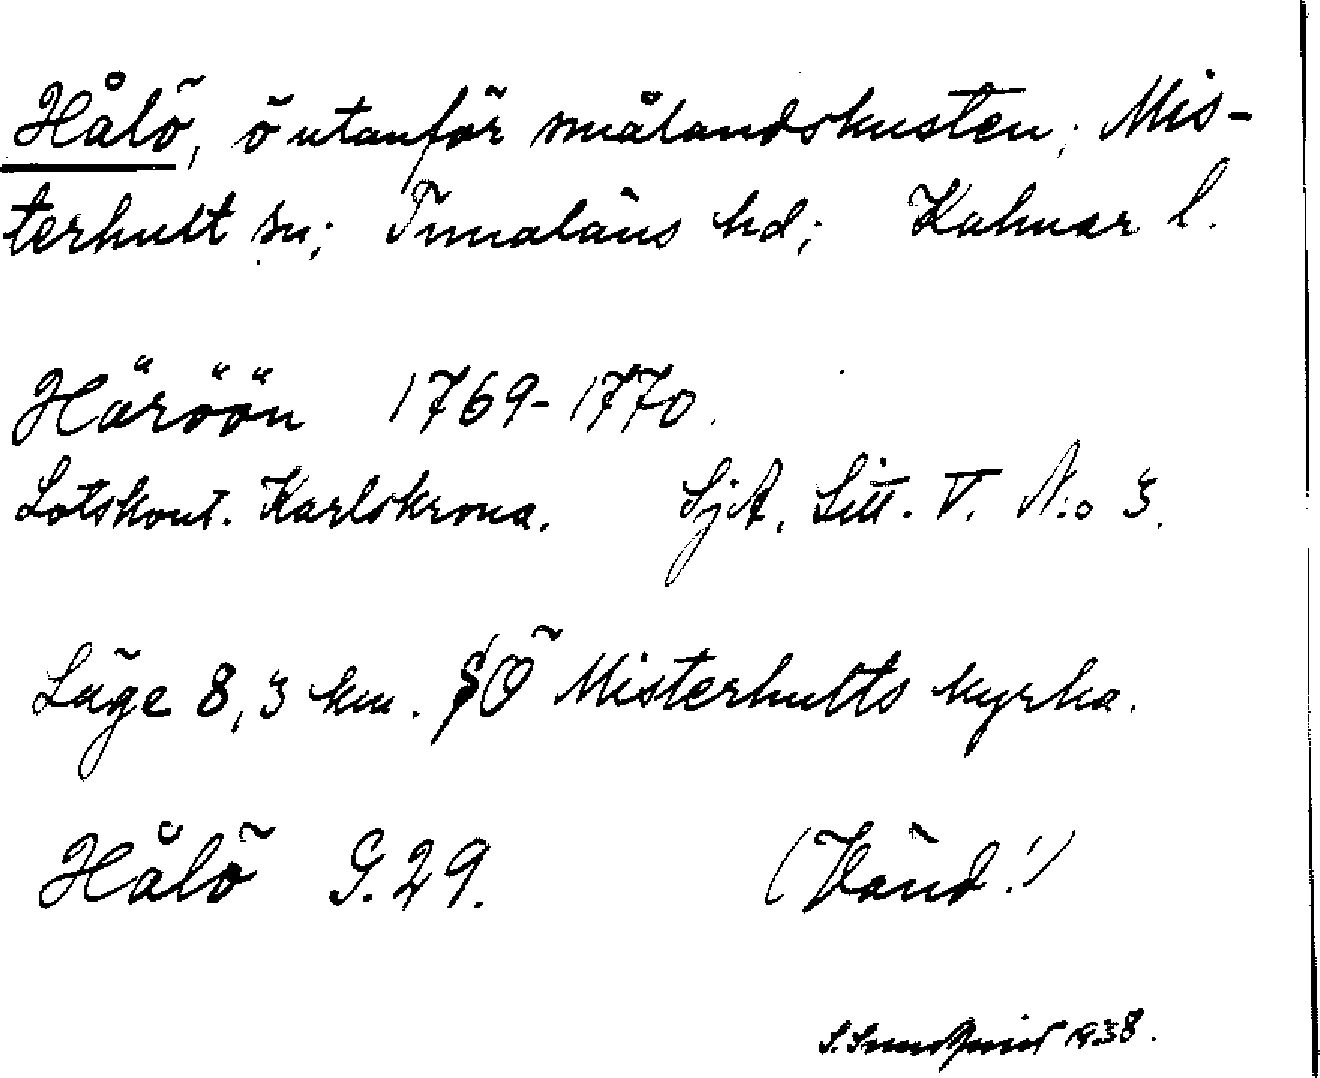 Hålö, ö utanför smålandskusten; Mis-
terhult sn; Tunaläns hd; Kalmar l.
Häröön 1769-1770.
Lotskont. Karlskrona. SjA. Litt. V. N:o 3.
Läge 8,3 km. Ö Misterhults kyrka.
Hålö G.29. (Vänd!)
1938.